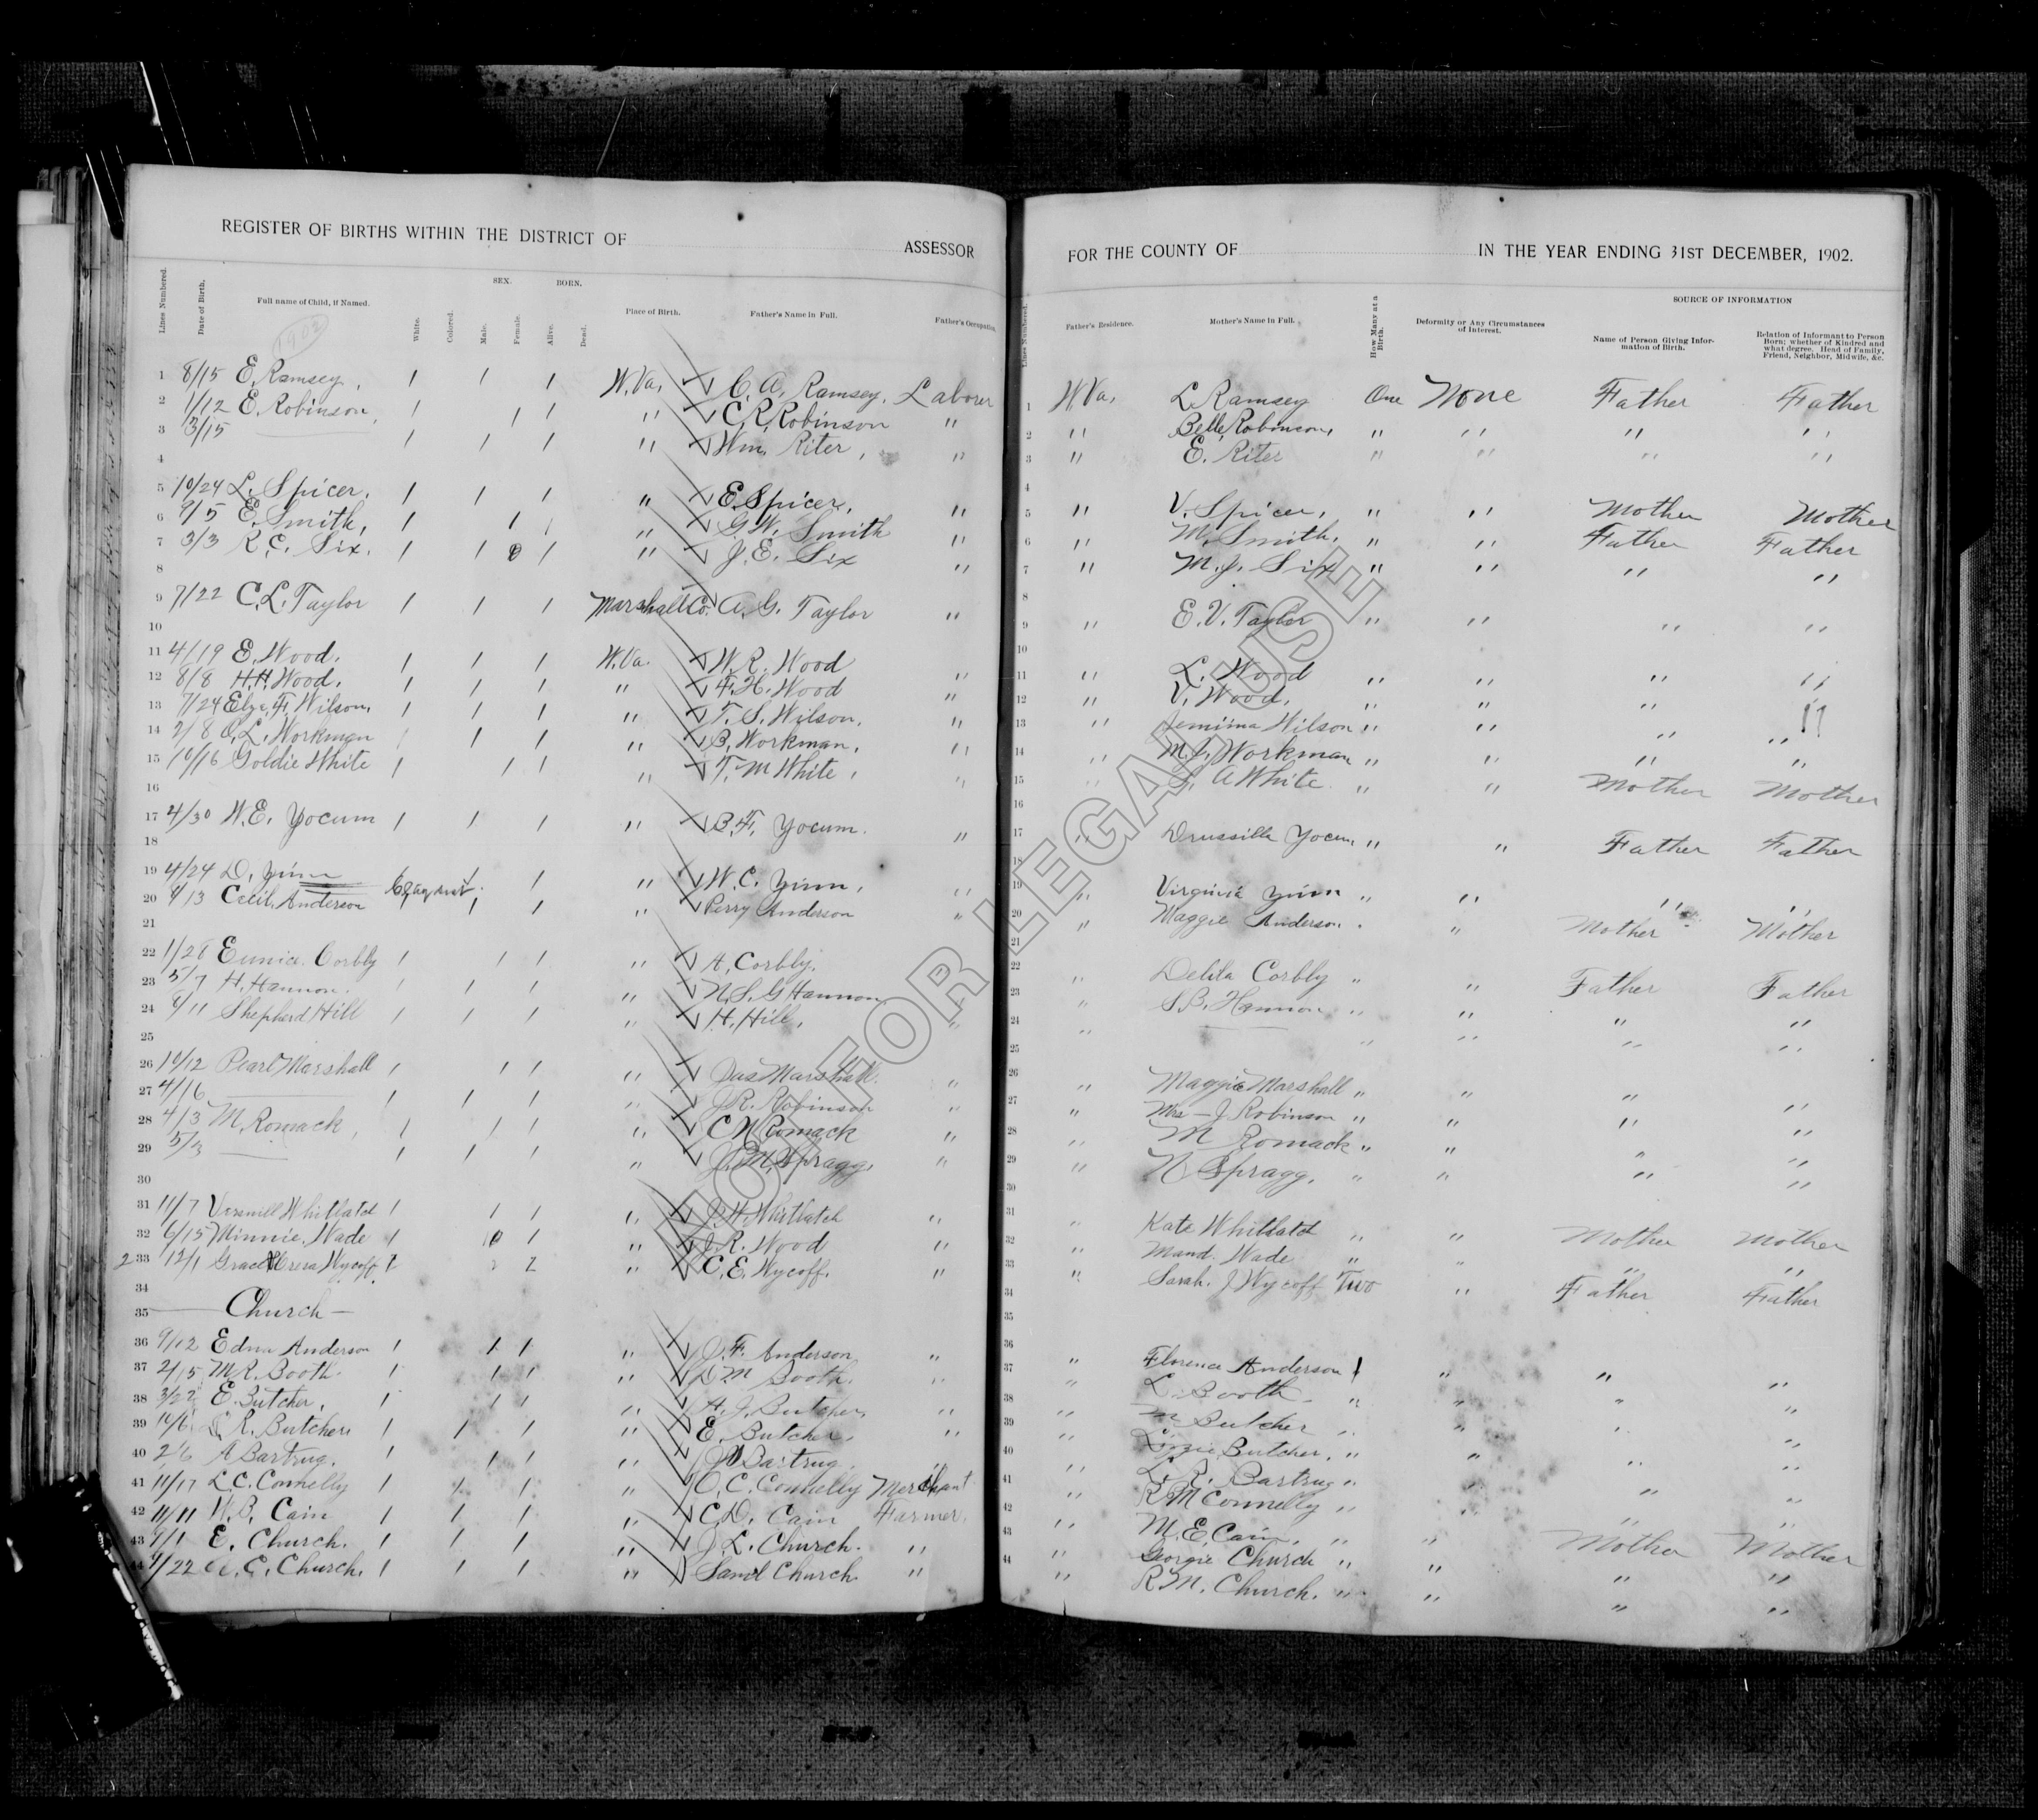 REGISTER OF BIRTHS WITHIN THE DISTRICT OF ASSESSOR
Lines Numbered. Date of Birth. Full name of Child, if Named. White. Colored. SEX. Male. Female. BORN. Alive. Dead. Place of Birth. Father's Name in Full. Father's Occupation.
1902
1 8/15 E. Ramsey, 1 1 1 W.Va. C. A. Ramsey. Laborer
2 1/12 E. Robinson, 1 1 1 " C. R. Robinson "
3 3/15 1 1 1 " Wm. Riter, "
4
5 10/24 L. Spicer. 1 1 1 " E. Spicer, "
6 9/5 E. Smith, 1 1 1 " G. W. Smith "
7 3/3 R. C. Six. 1 1 1 " J. E. Six "
8
9 7/22 C. L. Taylor 1 1 1 Marshall Co. A. G. Taylor "
10
11 4/19 E. Wood. 1 1 1 W.Va. W. R. Wood "
12 8/8 H. H. Wood. 1 1 1 " F. H. Wood "
13 7/24 F. Wilson. 1 1 1 " T. S. Wilson, "
14 2/8 O. L. Workman 1 1 1 " B. Workman, "
15 10/16 Goldie White 1 1 1 " T. M White, "
16
17 4/30 W. E. Yocum 1 1 1 " B. F. Yocum. "
18
19 4/24 D. Yinn 1 1 " W. C. Yinn, "
20 4/13 Cecil Anderson 1 1 1 " Perry Anderson "
21
22 1/28 Eunice Corbly 1 1 1 " A. Corbly.
23 5/7 H. Hannon. 1 1 1 " N. S. G Hannon "
24 8/11 Shepherd Hill 1 1 1 " H. Hill, "
25
26 10/12 Pearl Marshall 1 1 1 " Jas Marshall. "
27 4/16 1 1 1 " J. R. Robinson "
28 4/3 M. Romack, 1 1 1 " C W Romack "
29 5/3 1 1 1 " J. M. Spragg. "
30
31 11/7 Whitlatch 1 1 1 " J. H. Whitlatch "
32 6/15 Minnie Wade 1 1 " J. R. Wood "
2 33 12/1 Grace Wycoff 2 2 2 " C. E. Wycoff. "
34
35 Church
36 9/12 Edna Anderson 1 1 1 " J. F. Anderson "
37 2/15 M. R. Booth. 1 1 1 " D M Booth. "
38 3/22 E. Butcher, 1 1 1 " A. J. Butcher, "
39 10/6 R. Butcher 1 1 1 " E. Butcher, "
40 2/6 A Bartrug. 1 1 1 " Bartrug. "
41 11/17 L. C. Connelly 1 1 1 " O. C. Connelly Merchant
42 11/11 W. B. Cain 1 1 1 " C. D. Cain Farmer.
43 9/1 E. Church. 1 1 1 " J. L. Church. "
44 9/22 A. C. Church. 1 1 1 " Saml Church. "
FOR THE COUNTY OF IN THE YEAR ENDING 31ST DECEMBER, 1902.
Lines Numbered. Father's Residence. Mother's Name in Full. How Many at a Birth. Deformity or Any Circumstances of Interest. SOURCE OF INFORMATION Name of Person Giving Information of Birth. Relation of Informant to Person Born; whether of Kindred and what degree. Head of Family, Friend, Neighbor, Midwife, &c.
1 W.Va. L. Ramsey One None Father Father
2 " Belle Robinson, " " " "
3 " E. Riter " " " "
4
5 " V. Spicer, " " Mother Mother
6 " M. Smith, " " Father Father
7 " M. J. Six " " " "
8
9 " E. V. Taylor " " " "
10
11 " L. Wood " " " "
12 " V. Wood, " " " "
13 " Jemima Wilson " " " "
14 " M. J. Workman " " " "
15 " A White " " Mother Mother
16
17 " Drussilla Yocum " " Father Father
18
19 " Virginia Yinn " " " "
20 " Maggie Anderson " " Mother Mother
21
22 " Delila Corbly " " Father Father
23 " S. B. Hannon " " " "
24 " " " " "
25
26 " Maggie Marshall " " " "
27 " Mrs J. Robinson " " " "
28 " M Romack " " " "
29 " N Spragg. " " " "
30
31 " Kate Whitlatch " " Mother Mother
32 " Maud. Wade " " " "
33 " Sarah. J. Wycoff Two " Father Father
34
35
36 " Florence Anderson 1 " " "
37 " L. Booth " " " "
38 " M Butcher " " " "
39 " Lizzie Butcher, " " " "
40 " L. R. Bartrug " " " "
41 " R M Connelly " " " "
42 " M. E. Cain, " " Mother Mother
43 " Georgie Church " " " "
44 " R. M. Church. " " " "
NOT FOR LEGAL USE